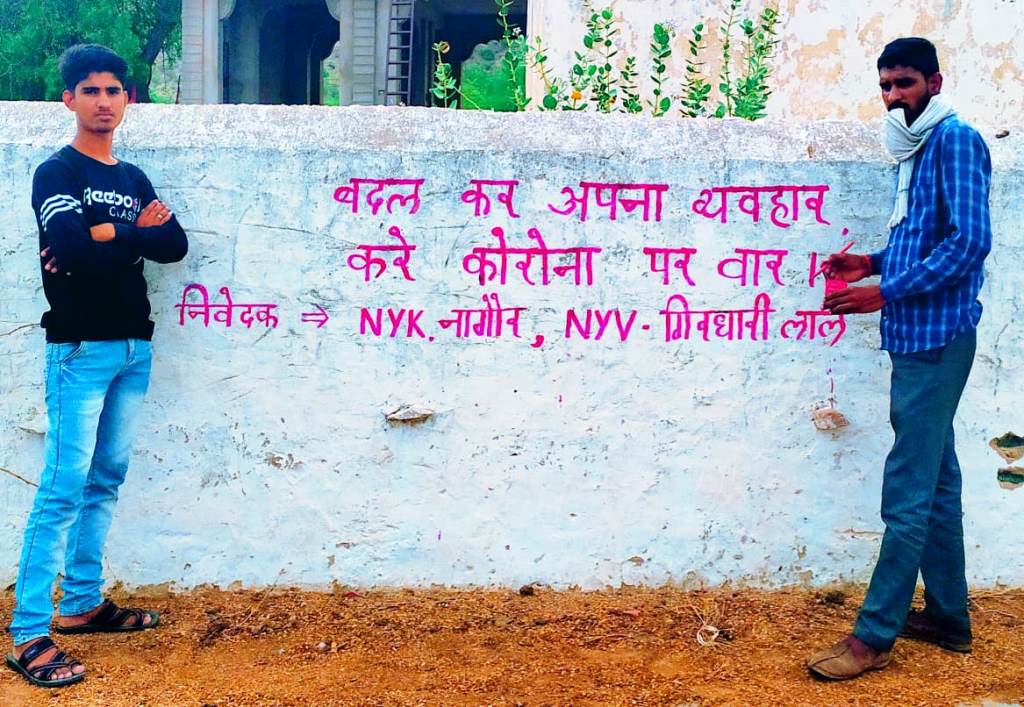 बदल कर अपना व्यवहार,
करे कोरोना पर वार।
निवेदक ⇒ NYK. नागौर, NYV - गिरधारी लाल
Reebok
CLASSIC